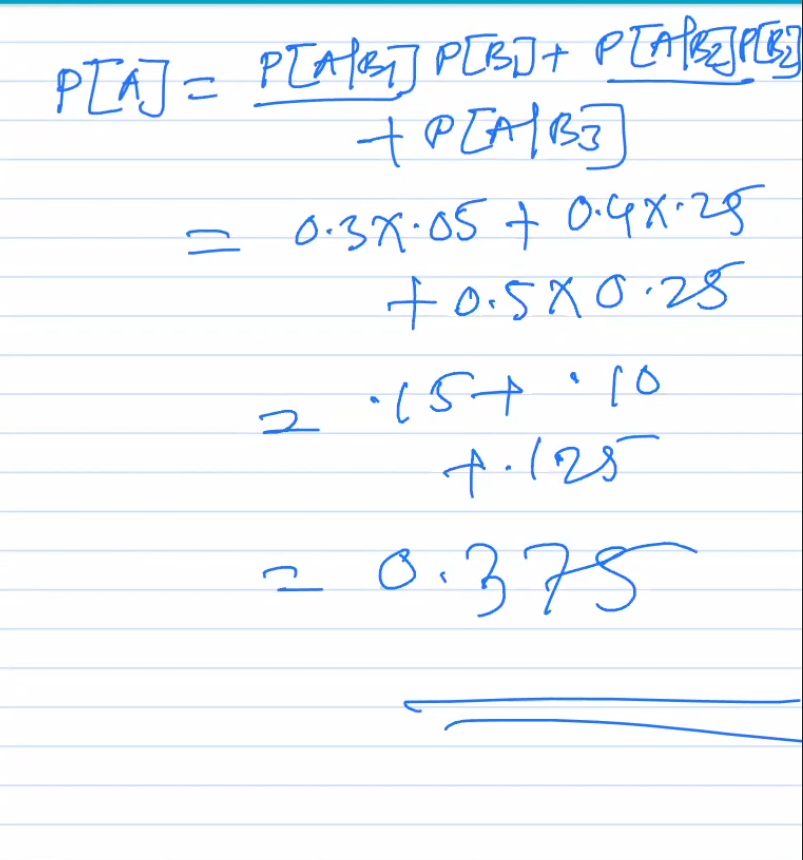 P[A] = P[A|B1] P[B1] + P[A|B2]P[B2]
+ P[A|B3]
= 0.3X.05 + 0.4X.25
+ 0.5X0.25
= .15+ .10
+.125
= 0.375